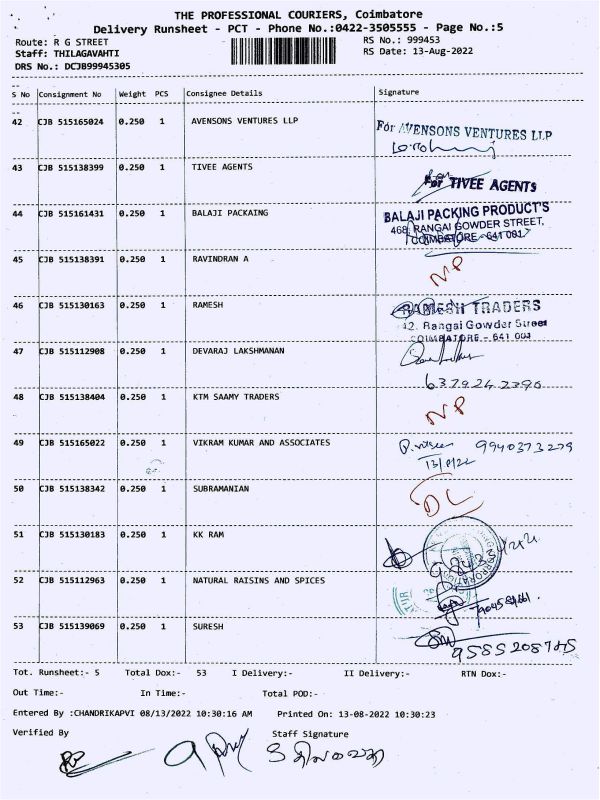 THE PROFESSIONAL COURIERS, Coimbatore
Delivery Runsheet - PCT - Phone No.:0422-3505555 - Page No.:5
Route: R G STREET
Staff: THILAGAVAHTI
DRS No.: DCJB99945305
RS No.: 999453
RS Date: 13-Aug-2022
S No Consignment No Weight PCS Consignee Details Signature
42 CJB 515165024 0.250 1 AVENSONS VENTURES LLP
For AVENSONS VENTURES LLP
43 CJB 515138399 0.250 1 TIVEE AGENTS
For TIVEE AGENTS
44 CJB 515161431 0.250 1 BALAJI PACKAING
BALAJI PACKING PRODUCT'S
468, RANGAI GOWDER STREET,
COIMBATORE - 641 001
45 CJB 515138391 0.250 1 RAVINDRAN A
NP
46 CJB 515130163 0.250 1 RAMESH
RAMESH TRADERS
12, Rangai Gowder Street
COIMBATORE - 641 001
47 CJB 515112908 0.250 1 DEVARAJ LAKSHMANAN
6379242390
48 CJB 515138404 0.250 1 KTM SAAMY TRADERS
NP
49 CJB 515165022 0.250 1 VIKRAM KUMAR AND ASSOCIATES
9940373279
13/8/22
50 CJB 515138342 0.250 1 SUBRAMANIAN
DL
51 CJB 515130183 0.250 1 KK RAM
52 CJB 515112963 0.250 1 NATURAL RAISINS AND SPICES
53 CJB 515139069 0.250 1 SURESH
Tot. Runsheet:- 5 Total Dox:- 53 I Delivery:- II Delivery:- RTN Dox:-
Out Time:- In Time:- Total POD:-
Entered By :CHANDRIKAPVI 08/13/2022 10:30:16 AM Printed On: 13-08-2022 10:30:23
Verified By Staff Signature